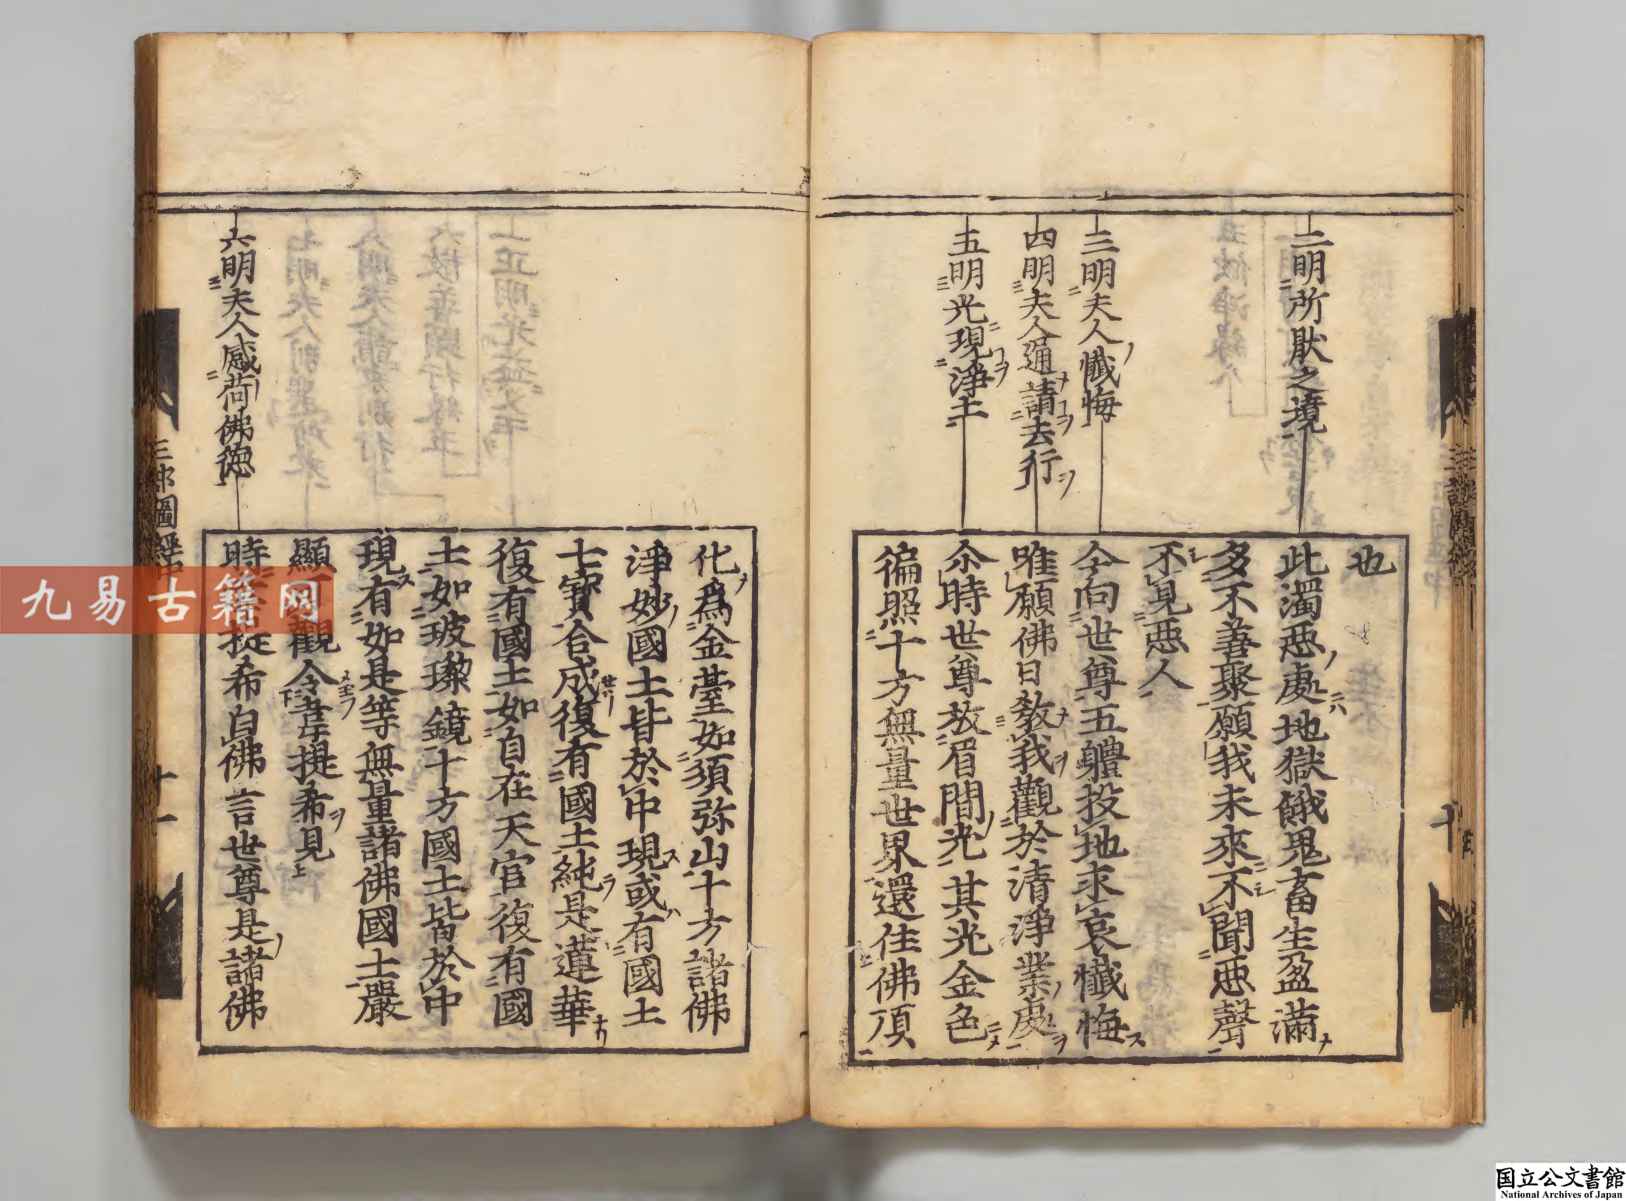 二明所厭之境
三明夫人懺悔
四明夫人通請去行
五明光現淨土
也
此濁惡處地獄餓鬼畜生盈滿
多不善聚願我未來不聞惡聲
不見惡人
今向世尊五軆投地求哀懺悔
唯願佛日教我觀於清淨業處
尒時世尊放眉間光其光金色
徧照十方無量世界還住佛頂
六明夫人感荷佛德
化爲金臺如須弥山十方諸佛
淨妙國土皆於中現或有國土
七寶合成復有國土純是蓮華
復有國土如自在天宮復有國
土如玻瓈鏡十方國土皆於中
現有如是等無量諸佛國土嚴
顯 觀令韋提希見
時 提希白佛言世尊是諸佛
十一
九易古籍网
国立公文書館
National Archives of Japan